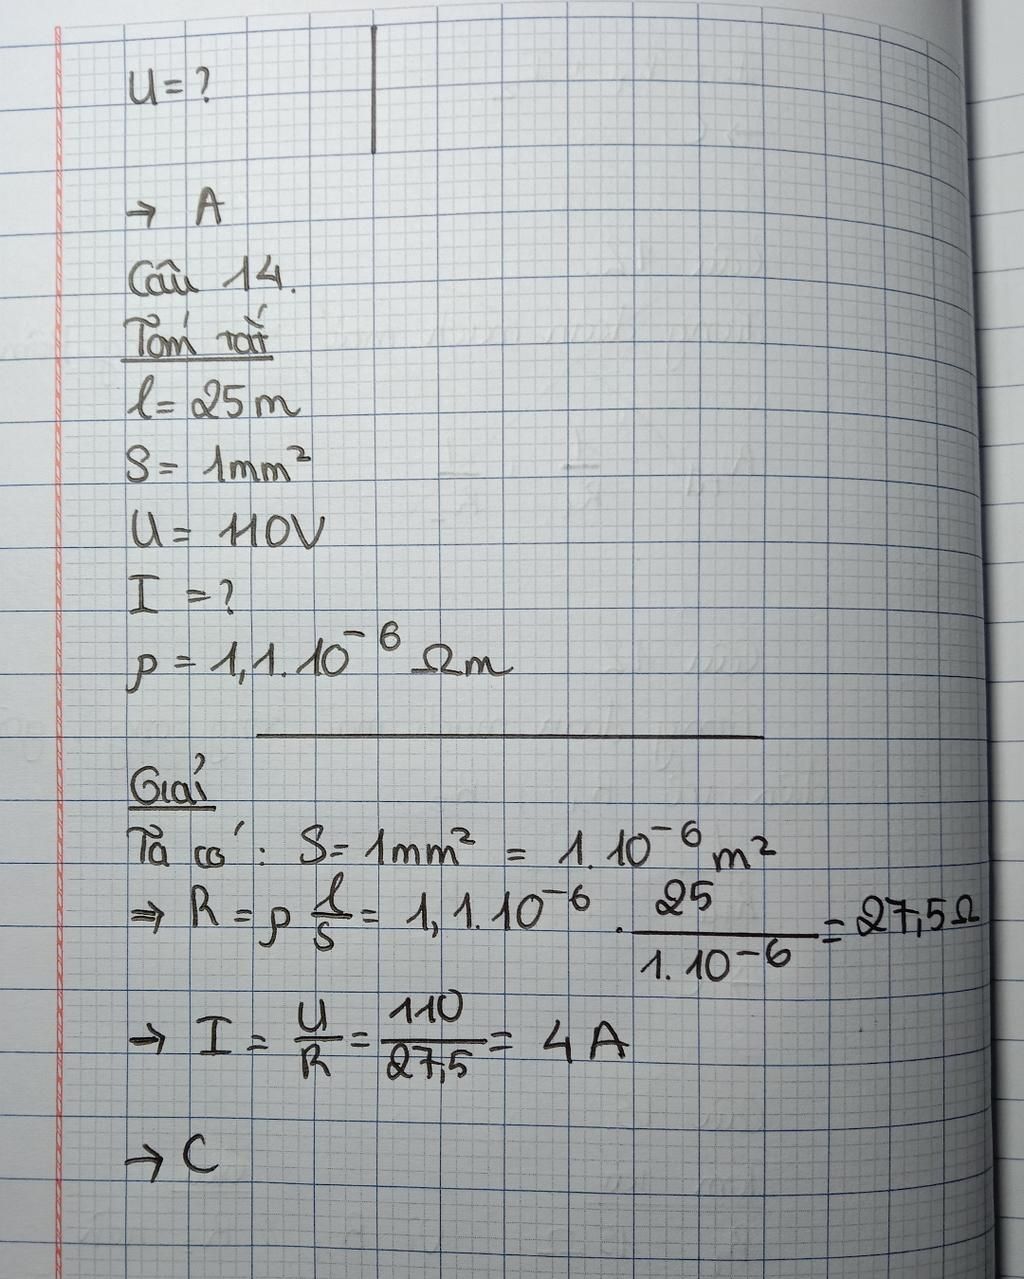 U = ?
→ A
Câu 14.
Tóm tắt
l = 25m
S = 1mm²
U = 110V
I = ?
ρ = 1,1.10⁻⁶ Ωm
Giải
Ta có : S = 1mm² = 1.10⁻⁶ m²
⇒ R = ρ l/S = 1,1.10⁻⁶ . 25/1.10⁻⁶ = 27,5Ω
→ I = U/R = 110/27,5 = 4A
→ C